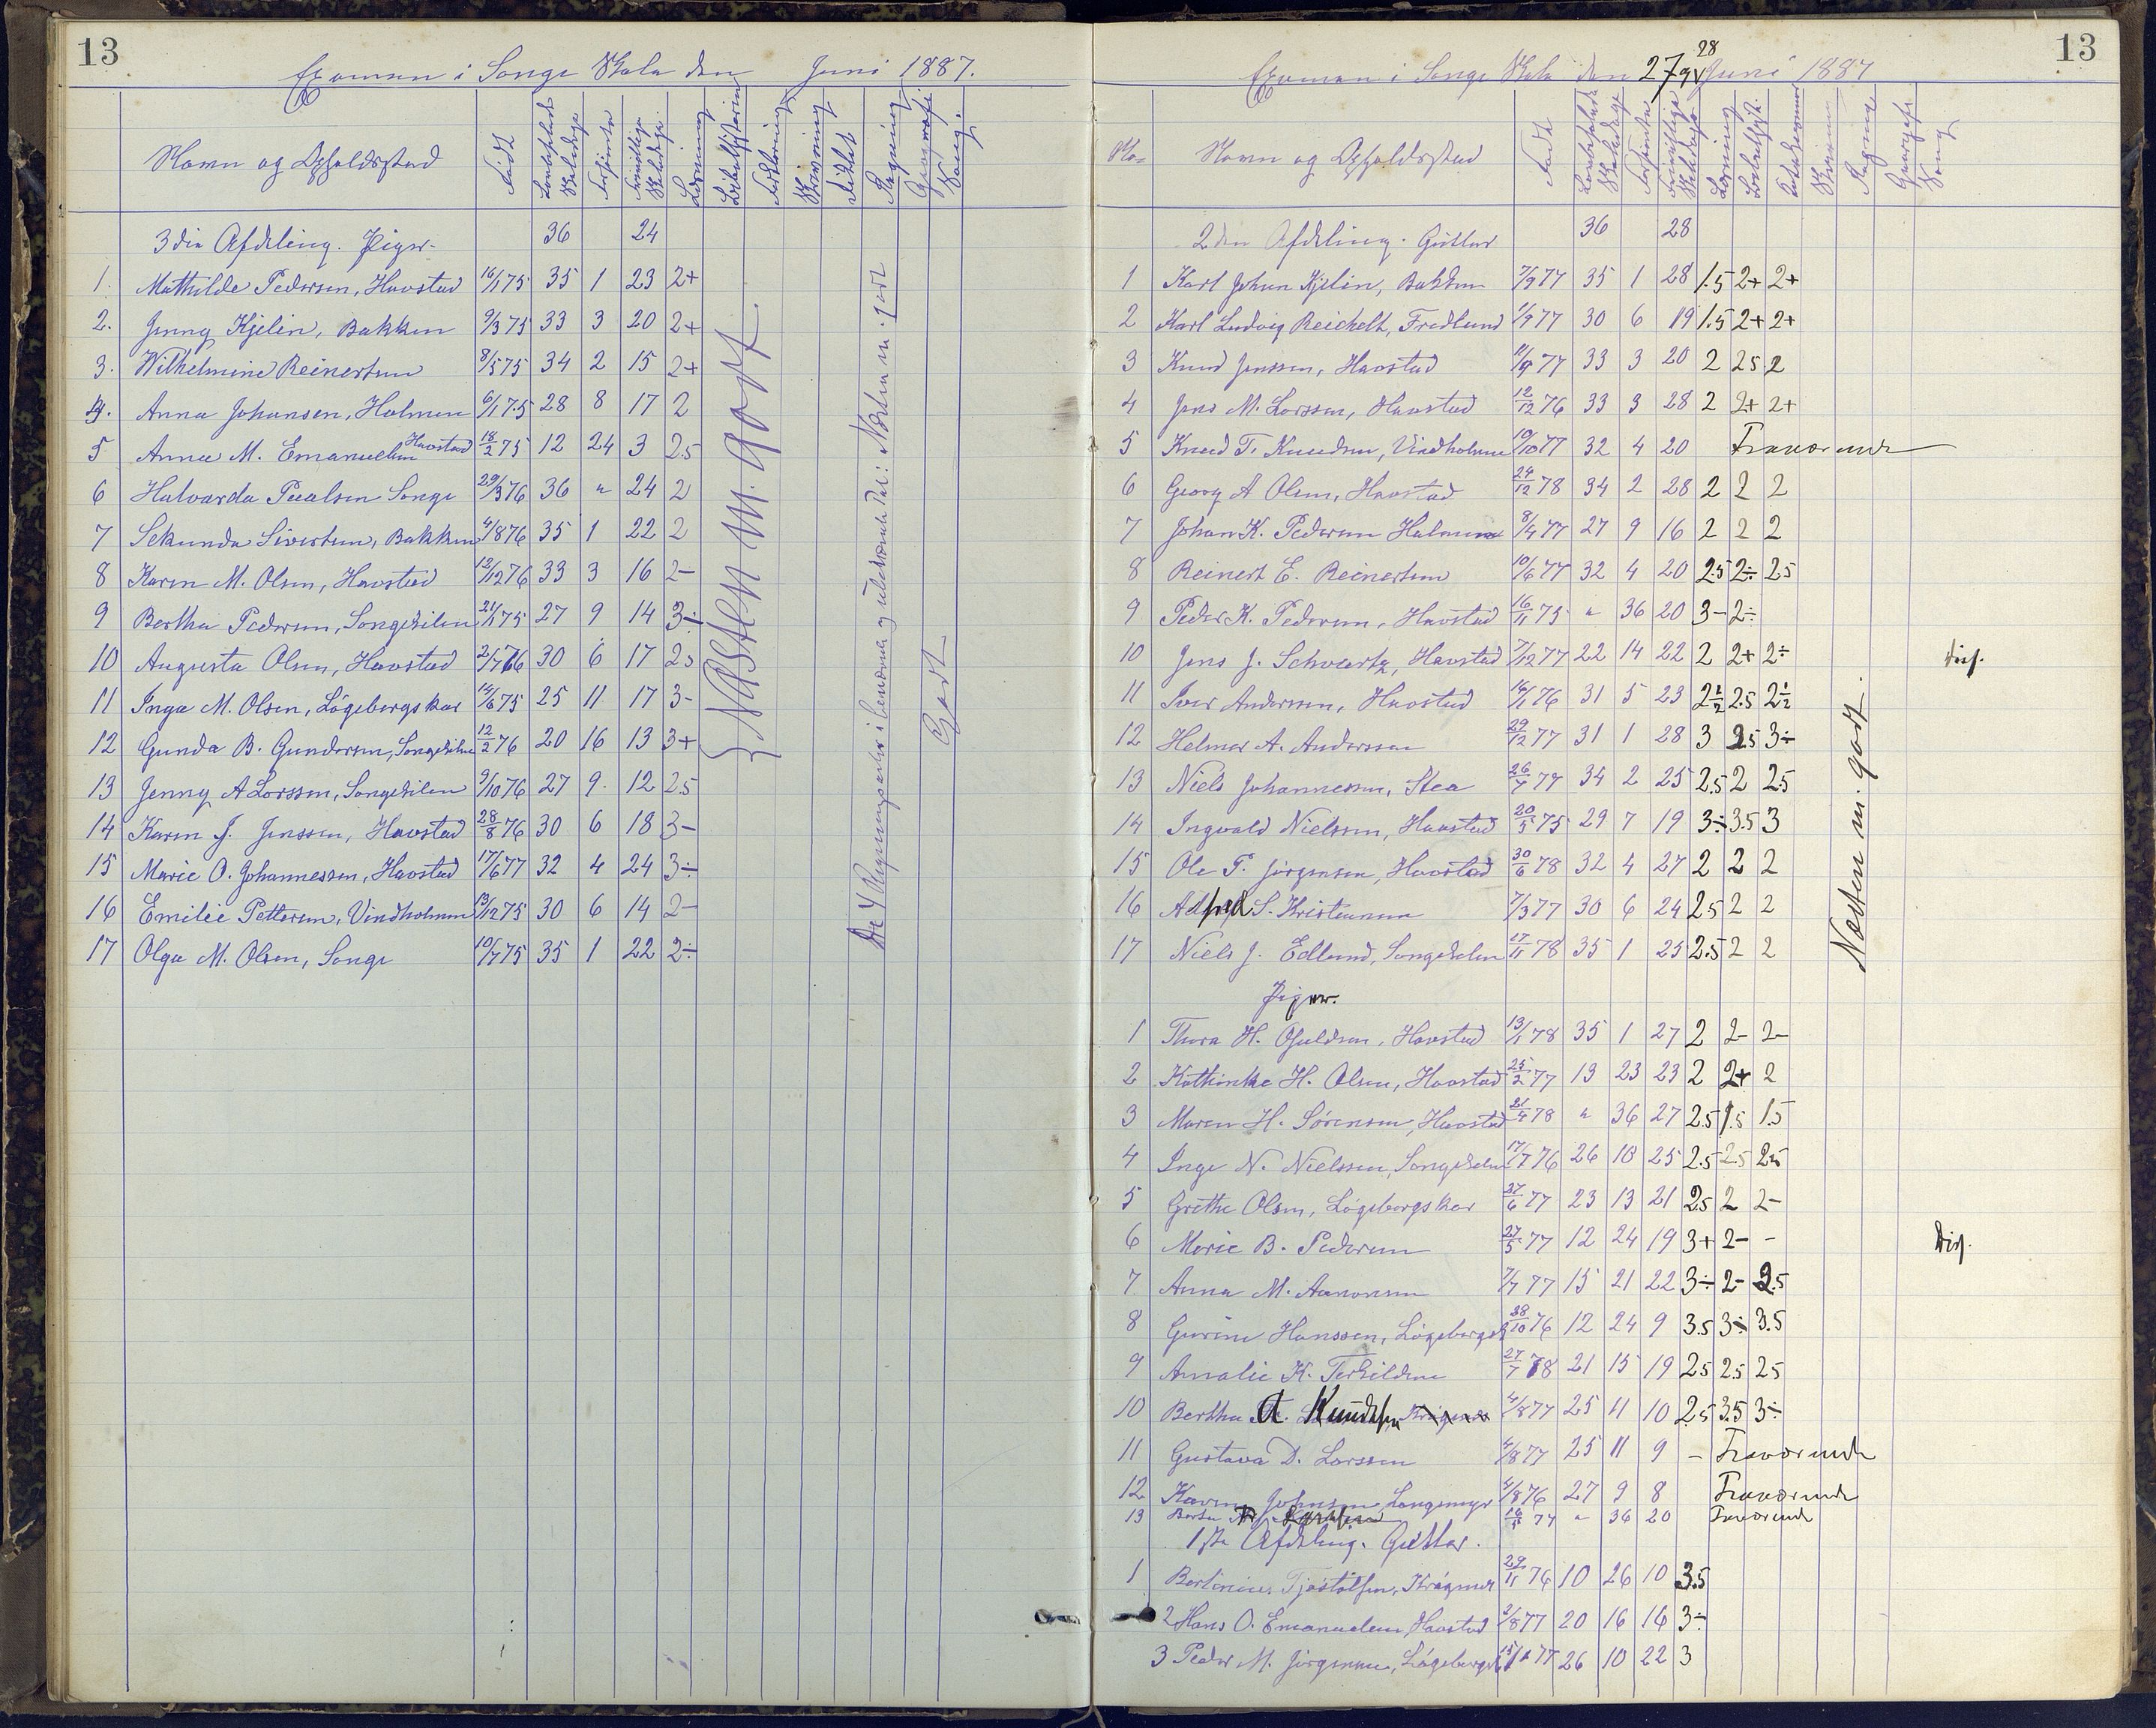 13
Examen i Songe Skole den Juni 1887.
Navn og Opholdssted
Født
Lovbefalede Skoledage
Forsømte
Frivillige Skoledage
Læsning
Bibelhistorie
Forklaring
Skrivning
Diktat
Regning
Geografi
Sang.
3die Afdeling. Piger. 36 24
1. Mathilde Pedersen, Havstad 16/1 75 35 1 23 2+
2. Jenny Kjelin, Bakken 9/3 75 33 3 20 2+
3. Wilhelmine Reinertsen 8/5 75 34 2 15 2+
4. Anna Johansen, Holmen 6/1 75 28 8 17 2
5 Anna M. Emanuelsen Havstad 18/2 75 12 24 3 2.5
6 Halvarda Paulsen Songe 29/3 76 36 " 24 2
7 Sekunda Sivertsen, Bakken 4/8 76 35 1 22 2
8 Karen M. Olsen, Havstad 12/12 76 33 3 16 2-
9 Bertha Pedersen, Songekilen 21/1 75 27 9 14 3÷
10 Augusta Olsen, Havstad 2/7 76 30 6 17 2.5
11 Inga M. Olsen, Lögebergskar 14/6 75 25 11 17 3-
12 Gunda B. Gundersen, Songekilen 12/2 76 20 16 13 3+
13 Jenny A Larssen, Songekilen 9/10 76 27 9. 12 2.5
14 Karen J. Jenssen, Havstad 28/8 76 30 6 18 3-
15 Marie O. Johannessen, Havstad 17/6 77 32 4 24 3÷
16 Emilie Pettersen, Vindholmen 13/12 75 30 6 14 2-
17 Olga M. Olsen, Songe 10/7 75 35 1 22 2÷
Næsten m. godt.
De 4 Regningsarter i benævnte og ubenævnte Tal: Næsten m. godt
Godt
13
Examen i Songe Skole den 27 og 28 Juni 1887
No
Navn og Opholdssted
Født
Lovbefalede Skoledage
Forsømte
Frivillige Skoledage
Læsning
Bibelhist.
Katekismus
Skrivning
Regning
Geografi
Sang
2den Afdeling. Gutter 36 28
1 Karl Johan Kjelin, Bakken 7/9 77 35 1 28 1.5 2+ 2+
2 Karl Ludvig Reichelt, Fredlund 1/9 77 30 6 19 1.5 2+ 2+
3 Knud Jenssen, Havstad 11/9 77 33 3 20 2 2.5 2
4 Jens M. Larssen, Havstad 12/12 76 33 3 28 2 2+ 2+
5 Knud T. Knudsen, Vindholmen 10/10 77 32 4 20 Fraværende
6 Georg A Olsen, Havstad 24/12 78 34 2 28 2 2 2
7 Johan K. Pedersen Holmen 8/4 77 27 9 16 2 2 2
8 Reinert E. Reinertsen 10/6 77 32 4 20 2.5 2÷ 2.5
9 Peder K. Pedersen, Havstad 16/11 75 " 36 20 3- 2÷
10 Jens J. Schwartz, Havstad 7/12 77 22 14 22 2 2+ 2÷
11 Iver Andersen, Havstad 16/1 76 31 5 23 2½ 2.5 2½
12 Helmer A. Anderssen 29/12 77 31 1 28 3 2.5 3÷
13 Niels Johannessen, Stea 26/7 77 34 2 25 2.5 2 2.5
14 Ingvald Nielssen, Havstad 20/5 75 29 7 19 3÷ 3.5 3
15 Ole P. Jörgensen, Havstad 30/6 78 32 4 27 2 2 2
16 Alfred S. Kristensen 7/3 77 30 6 24 2.5 2 2
17 Niels J. Edlund, Songekilen 17/11 78 35 1 25 2.5 2 2
Næsten m. godt.
Piger.
1 Thora H. Osuldsen, Havstad 13/1 78 35 1 27 2 2- 2-
2 Kathinka H. Olsen, Havstad 25/2 77 13 23 23 2 2+ 2
3 Maren H. Sørensen, Havstad 21/4 78 " 36 27 2.5 1.5 1.5
4 Inge N. Nielssen, Songekilen 17/7 76 26 10 25 2.5 2.5 2.5
5 Grethe Olsen, Lögebergskar 27/6 77 23 13 21 2.5 2 2-
6 Marie B. Pedersen 27/5 77 12 24 19 3+ 2- -
7 Anna M. Aanonsen 7/7 77 15 21 22 3÷ 2- 2.5
8 Gurine Hanssen, Lögebergsk 28/10 76 12 24 9 3.5 3÷ 3.5
9 Amalie K. Terkildsen 27/7 78 21 15 19 2.5 2.5 2.5
10 Bertha A Knudsen 4/8 77 25 11 10 2.5 3.5 3÷
11 Gustava D. Larssen 4/8 77 25 11 9 - Fraværende
12 Karen Johnsen Langemyr 4/8 76 27 9 8 Fraværende
13 Larsen 77 " 36 20 Fraværende
1ste Afdeling. Gutter.
1 Bertinius Tjöstolfsen, Krágenes 29/11 76 10 26 10 3.5
2 Hans O. Emanuelsen Havstad 2/8 77 20 16 16 3÷
3 Peder M. Jörgensen, Lögebergsk 77 26 10 22 3